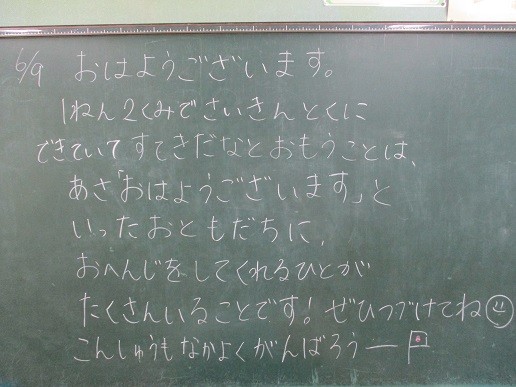 6/9 おはようございます。
1ねん2くみでさいきんとくに
できていてすてきだなとおもうことは、
あさ「おはようございます」と
いったおともだちに、
おへんじをしてくれるひとが
たくさんいることです!ぜひつづけてね
こんしゅうもなかよくがんばろうー